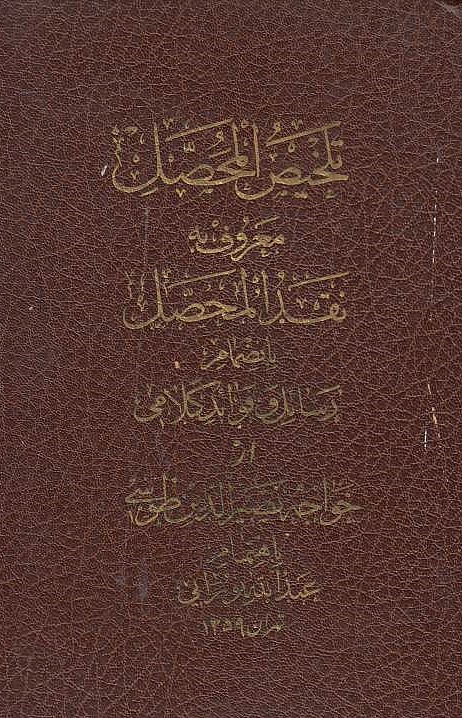 تلخيص المحصّل
معروف به
نقد المحصّل
بانضمام
رسائل و فوائد كلامى
از
خواجه نصير الدين طوسى
باهتمام
عبد الله نورانى
تهران ۱۳۵۹